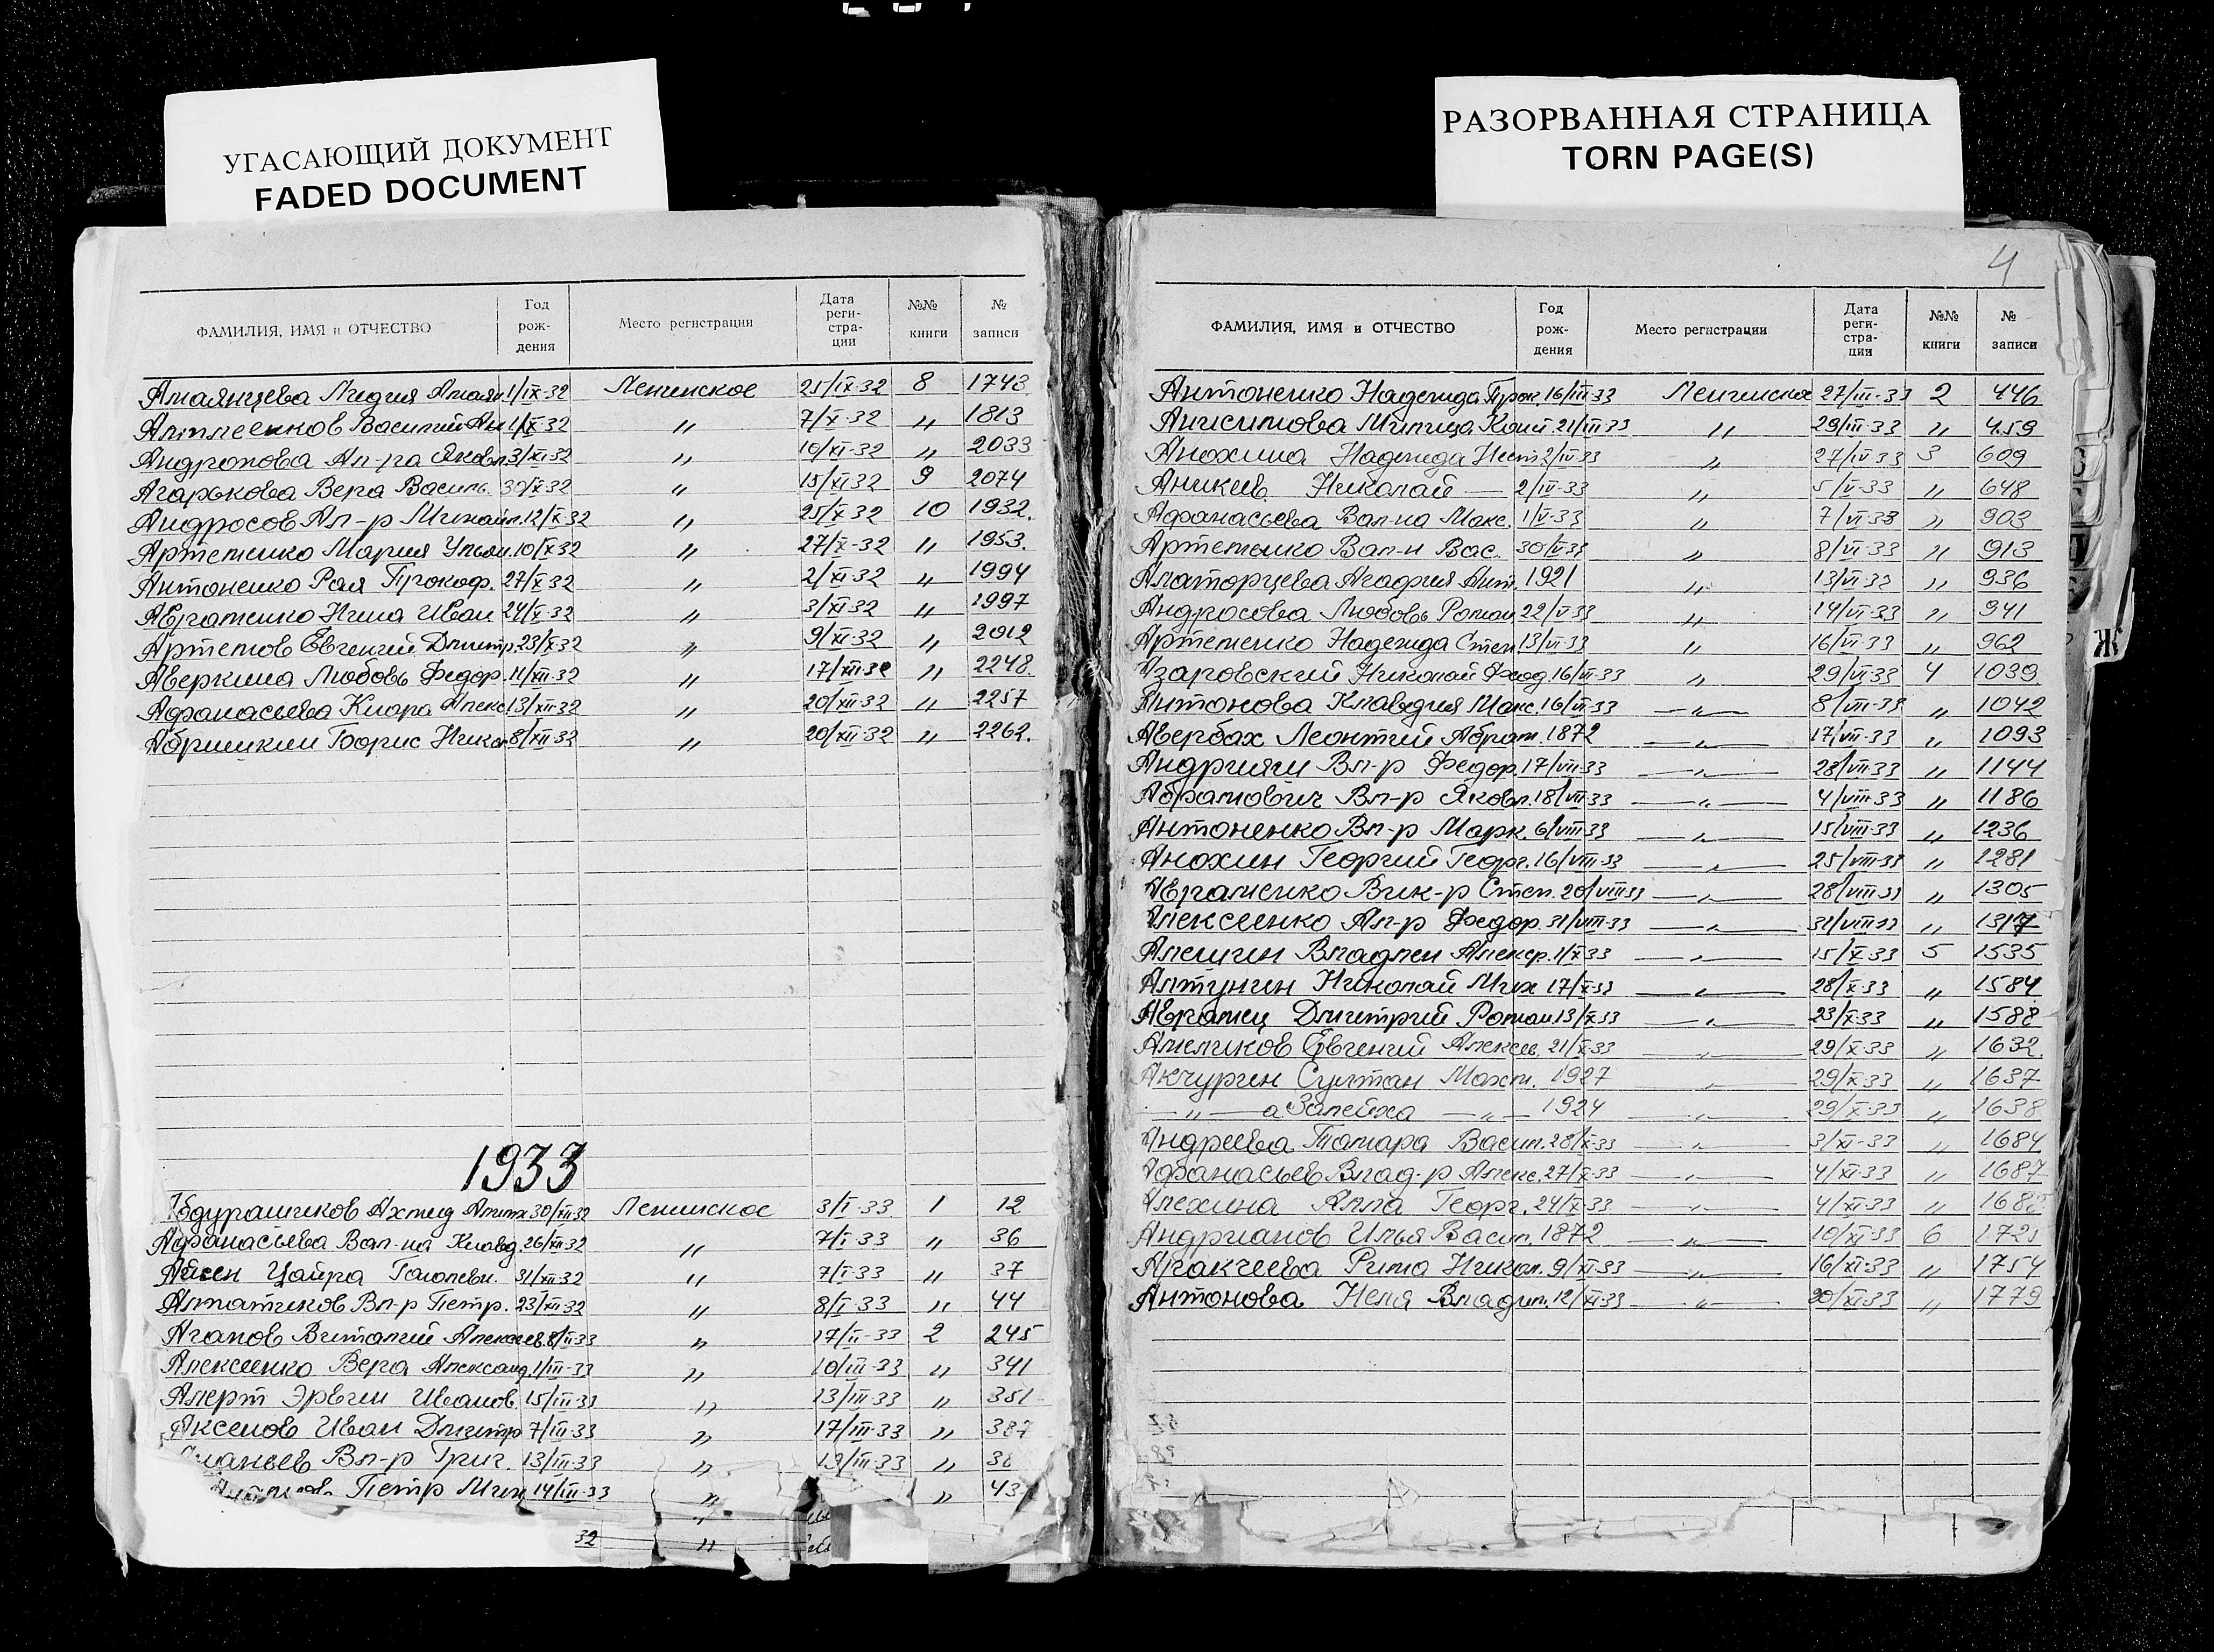 УГАСАЮЩИЙ ДОКУМЕНТ
FADED DOCUMENT
ФАМИЛИЯ, ИМЯ и ОТЧЕСТВО Год рож- дения Место регистрации Дата реги- стра- ции №№ книги № записи
Амаянцева Лидия Амаян 1/IX-32 Ленинское 25/IX-32 8 1743
Василий Ан 1/X-32 " 7/X-32 " 1813
Андропова Ал-ра Яковл 3/XI-32 " 10/XI-32 " 2033
Агарькова Вера Василь. 30/X-32 " 15/XI 32 9 2074
Андросов Ал-р Михайл. 12/X-32 " 25/X-32 10 1932.
Артеменко Мария Ульян. 10/X-32 " 27/X-32 " 1953.
Антоненко Рая Прокоф. 27/X-32 " 2/XI-32 " 1994
Авраменко Нина Иван 24/X-32 " 3/XI-32 " 1997
Артемов Евгений Дмитр. 23/X-32 " 9/XI-32 " 2012
Аверкина Любовь Федор. 11/XII-32 " 17/XII-32 " 2248.
Афанасьева Клара Алекс 13/XII-32 " 20/XII-32 " 2257
Абрашкин Борис Никол 8/XII-32 " 20/XII-32 " 2262.
1933
Абдурашиков Ахмид 30/XII-32 Ленинское 3/I-33 1 12
Афанасьева Вал-на Клавд. 26/XII-32 " 7/I-33 " 36
Цайра 31/XII-32 " 7/I-33 " 37
Алматиков Вл-р Петр. 23/XII-32 " 8/I-33 " 44
Агапов Виталий Алексеев. 8/II-33 " 17/II-33 2 245
Алексеенко Вера Александ. 1/III-33 " 10/III-33 " 341
Алерт Эрвин Иванов. 15/III-33 " 13/III-33 " 351
Аксенов Иван Дмитр 7/III-33 " 17/III-33 " 387
Вл-р Григ. 13/III-33 " 19/III-33 " 38
Петр Мих 14/III-33 " " 43
32 "
РАЗОРВАННАЯ СТРАНИЦА
TORN PAGE(S)
4
ФАМИЛИЯ, ИМЯ и ОТЧЕСТВО Год рож- дения Место регистрации Дата реги- стра- ции №№ книги № записи
Антоненко Надежда Прок. 16/III-33 Ленинское 27/III-33 2 446
Анисимова Милица Конст. 21/III-33 " 29/III-33 " 459
Анохина Надежда Нест 2/IV-33 " 27/IV-33 3 609
Аникив Николай — 2/IV-33 " 5/V-33 " 648
Афанасьева Вал-на Макс. 1/V-33 " 7/VI-33 " 903
Артеменко Вал-н Вас. 30/V-33 " 8/VI-33 " 913
Алаторцева Агафия Ант. 1921 " 13/VI-33 " 936
Андросова Любовь Роман 22/V-33 " 14/VI-33 " 941
Артеменко Надежда Степ. 13/VI-33 " 16/VI-33 " 962
Азаровский Николай Фед. 16/VI-33 " 29/VI-33 4 1039
Антонова Клавдия Макс. 16/VI-33 — " — 8/VII-33 " 1042
Авербах Леонтий Абрам. 1872 — " — 17/VII-33 " 1093
Андрияш Вл-р Федор. 17/VII-33 — " — 28/VII-33 " 1144
Абрамович Вл-р Яковл. 18/VII-33 — " — 4/VIII-33 " 1186
Антоненко Вл-р Марк. 6/VIII-33 — " — 15/VIII-33 " 1236
Анохин Георгий Георг. 16/VIII-33 — " — 25/VIII-33 " 1281
Авраменко Вик-р Степ. 20/VIII-33 — " — 28/VIII-33 " 1305
Алексеенко Ал-р Федор. 31/VIII-33 — " — 31/VIII-33 " 1317
Алешин Владлен Алекср. 1/X-33 — " — 15/X-33 5 1535
Алтунин Николай Мих 17/X-33 — " — 28/X-33 " 1584
Аврамец Дмитрий Роман 13/X-33 — " — 23/X-33 " 1588
Амеликов Евгений Алексев. 21/X-33 — " — 29/X-33 " 1632.
Акчурин Султан Махм. 1927 " 29/X-33 " 1637
— " — а Залейха — " — 1924 — " — 29/X-33 " 1638
Андреева Тамара Васил. 28/X-33 — " — 3/XI-33 " 1684
Афанасьев Влад-р Алекс. 27/X-33 — " — 4/XI-33 " 1687
Алехина Алла Георг. 24/X-33 — " — 4/XI-33 " 168
Андрианов Илья Васил. 1872 — " — 10/XI-33 6 172
Аракчеева Рима Никол. 9/XI-33 — " — 16/XI-33 " 1754
Антонова Неля Владим. 12/XI-33 — " — 20/XI-33 " 1779
Ж